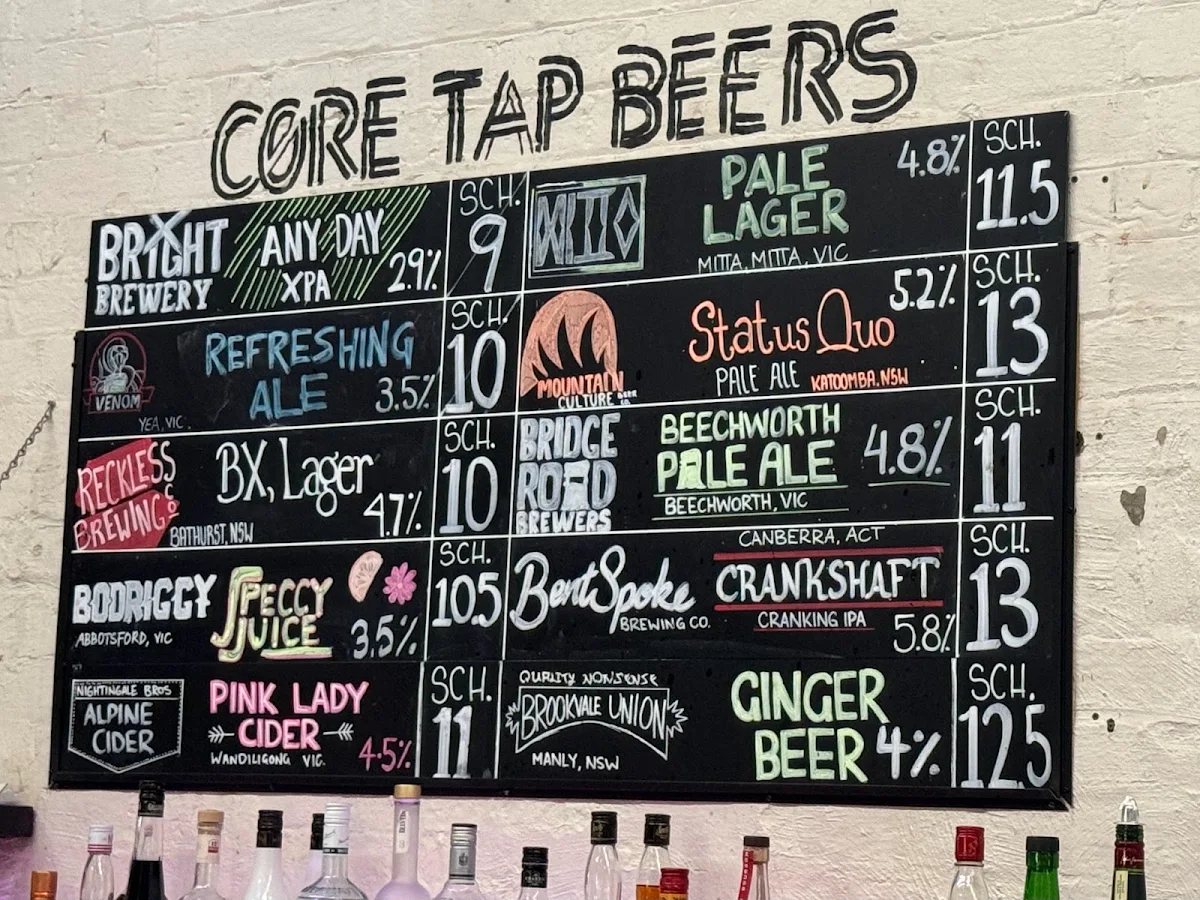 CORE TAP BEERS
BRIGHT
BREWERY
ANY DAY
XPA
2.9%
SCH.
9
MITTA
PALE
LAGER
MITTA, MITTA, VIC
4.8%
SCH.
11.5
VENOM
YEA, VIC.
REFRESHING
ALE
3.5%
SCH.
10
MOUNTAIN
CULTURE BEER CO.
Status Quo
PALE ALE
KATOOMBA. NSW
5.2%
SCH.
13
RECKLESS
BREWING Co
BATHURST, NSW
BX, Lager
4.7%
SCH.
10
BRIDGE
ROAD
BREWERS
BEECHWORTH
PALE ALE
BEECHWORTH, VIC
4.8%
SCH.
11
BODRIGGY
ABBOTSFORD, VIC
SPECCY
JUICE
3.5%
SCH.
10.5
BentSpoke
BREWING CO.
CANBERRA, ACT
CRANKSHAFT
CRANKING IPA
5.8%
SCH.
13
NIGHTINGALE BROS
ALPINE
CIDER
PINK LADY
CIDER
WANDILIGONG VIC.
4.5%
SCH.
11
QUALITY NONSENSE
BROOKVALE UNION
MANLY, NSW
GINGER
BEER
4%
SCH.
12.5